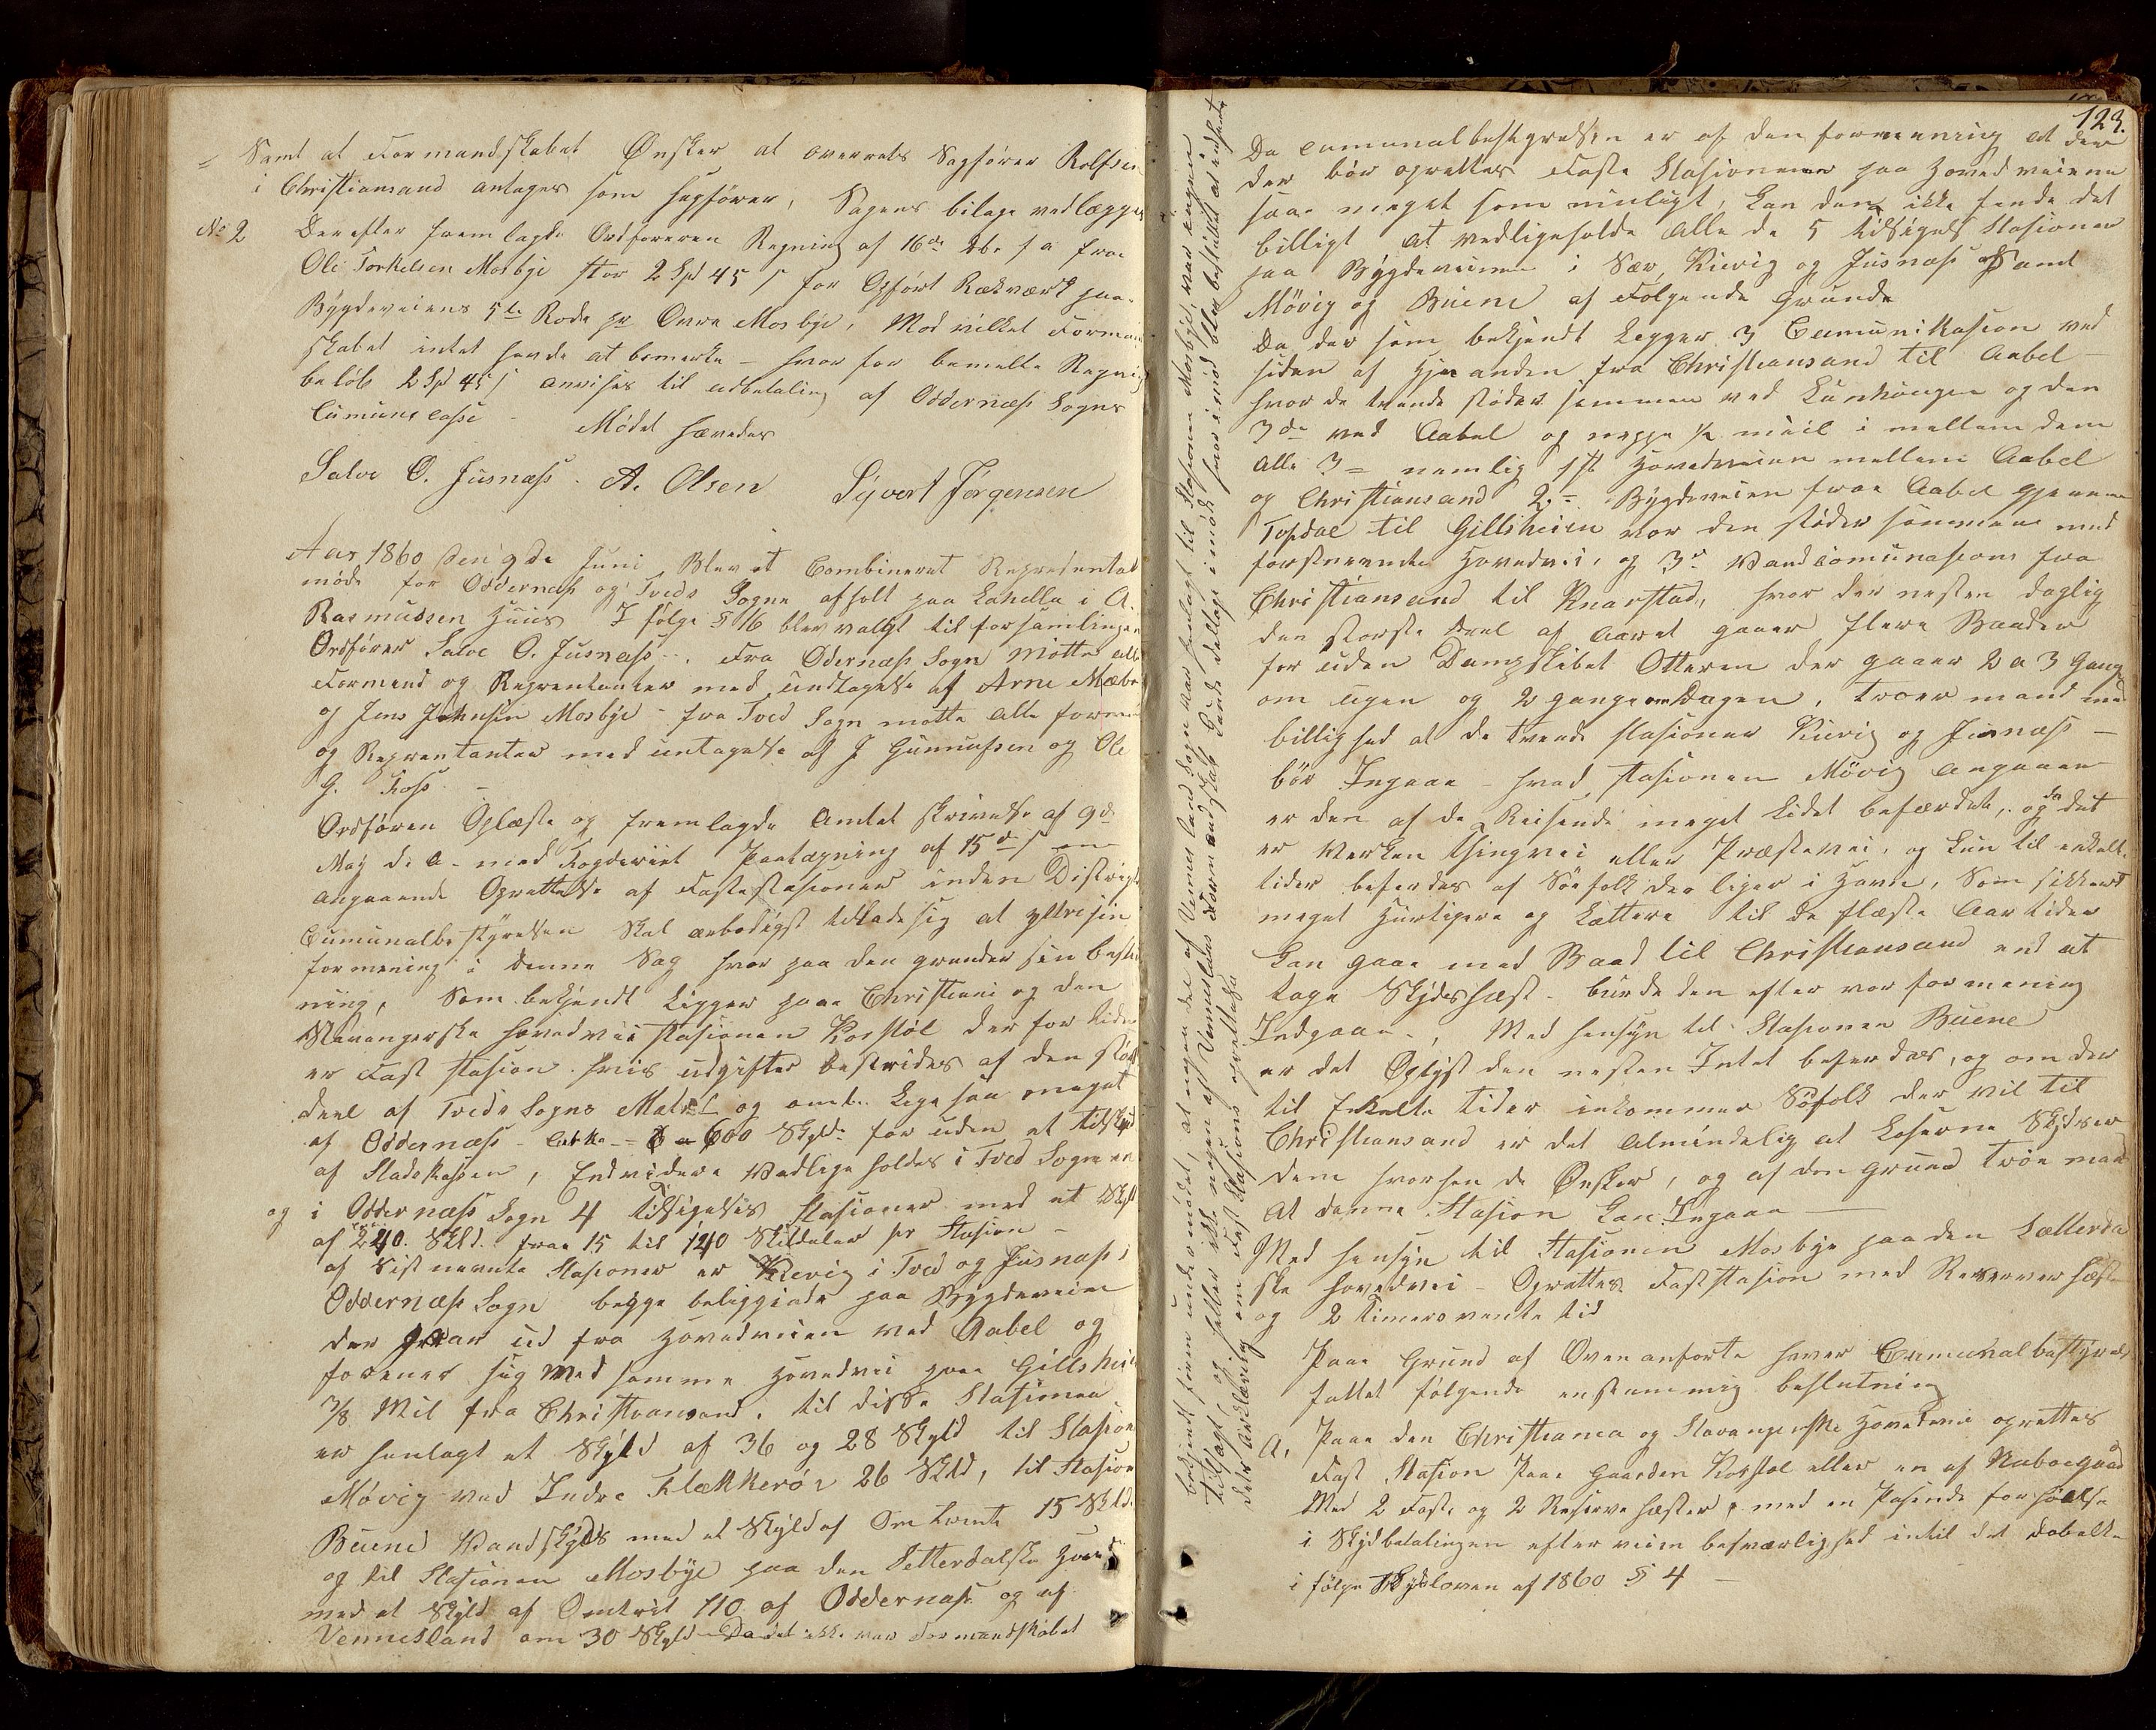 = Samt at Formandskabet Ønsker at overrets Sagfører Rolfsen
i Christiansand antages som sagfører, Sagens bilage vedlægges
No 2 Derefter fremlagde Ordføreren Regning af 16de
Ole Torkelsen Mosbye stor 2 Spd 45 s for Opført Rækværk paa
Bygdeveiens 5te Rode paa Øvre Mosbye, Mod vilket Formand
skabet intet havde at bemerke - hvor for bemelte Regnig
beløb 2 Spd 45 s anvises til udbetaling af Oddernæss Sogns
Cumunecasse - Mødet hævedes
Salve O. Jusnæss. A. Olsen Syvert Jørgensen
Aar 1860 den 9de Juni Blev et Combineret Representat
møde for Oddernæs og Tveds Sogne afholt paa Lahella i A.
Rasmussen Huus I følge § 16 blev valgt til forsamlingen
Ordfører Salve O. Jusnæss -. Fra Odernæss Sogn Møtte alle
Formend og Reprentanter med undtagelse af Arne Mæbø
og Jens Johnsen Mosbye - fra Tved Sogn møtte alle form
og Reprentanter med untagelse af J Gunnufsen og Ole
G. Foss -
Ordføren Oplæste og fremlagde Amtet skrivelse af 9de
May d. A - med Fogderiet Paategning af 15de s m
angaaende Oprettelse af Fastestasioner inden Distrigt
Cumunalbestyrelsen Skal ærbødigst tillade sig at yttre sin
formening i denne Sag hvor paa den grunder sin beslut
ning, Som bekjendt ligger paa Christiani og den
Stavangerske hovedvei stasionen Kosstøl der for tiden
er Fast stasion hvis udgifter bestrides af den største
deel af Tveds Sogns Matrl og omtr. lige saa meget
af Oddernæss - Cirka - 600 Skyld for uden et tilskud
af Stadskassen, Endvidere Vedlige holdes i Tved Sogn en
og i Oddernæss Sogn 4 tilsigelses Stasioner med et Skyld
af 240. Skld. fraa 15 til 140 Skildaler pr Stasion -
af Sist nevnte Stasioner er Kuevig i Tved og Jusnæss i
Oddernæss Sogn begge beliggende paa Bygdeveien
der gaar ud fra Hovedveien ved Aabel og
forener sig med samme Hovedvei paa Gillsheia
7/8 Mil fra Christiansand. til disse Stasioner
er henlagt et Skyld af 36 og 28 Skyld til Stasion
Møvig ved Indre Flekkerør 26 Skld, til Stasion
Buene Vandskyds med et Skyld af Om trent 15 Skld.
og til Stasionen Mosbye paa den Setterdalske Hoved
med et Skyld af Omtrent 110 af Oddernæss og af
Vennesland om 30 Skyld Da det ikke var Formandskabet
bekjent førend unde mødet, at nogen del af Vennesland Sogn var henlagt til Stasionen Mosbye, var ingen
tilsagt, og heller ikke nogen af Venneslands Formandskab kunde deltage i møde
der Anklærig om Fast Stasions oprettelse
123.
Da cumunalbestyrelsen er af den formenning at der
der bør oprettes Faste Stasioner paa Hovedveiene
saa meget som muligt, kan den ikke finde det
billigt at vedligeholde alle de 5 tilsigels Stasioner
paa Bygdeveiene i Sær, Kuevig og Jusnæss Samt
Møvig og Buene af Følgende Grunde
Da der som bekjendt ligger 3 Cumunikasion ved
siden af hinanden fra Christiansand til Aabel -
hvor de tvende støder sammen ved Kunkongen og den
3de ved Aabel og neppe 1/2 miil i mellem dem
alle 3 = nemlig 1st Hovedveien mellem Aabel
og Christiansand 2. = Bygdeveien fraa Aabel gjennem
Topdal til Gillsheien vor den støder sammen med
førstnevnte Hovedvei, og 3de Vandcomunasion fra
Christiansand til Knarstad, hvor der nesten daglig
den største deel af Aaret gaaer flere Baader
for uden Dampskibet Otteren der gaaer 2 a 3 Gange
om ugen og 2 gange om Dagen, troer mand med
billighed at de tvende stasioner Kuevig og Jusnæss -
bør Ingaae - hvad stasionen Møvig angaaer
er den af de Reisende meget lidet befærdet, og da det
er Verken Thingvei eller Præstevei, og kun til enkelte
tider beferdes af Søefolk der liger i Havn, Som sikkert
meget Hurtigere og Lættere til de fleste Aar tider
kan gaae med Baad til Christiansand end at
tage Skydshæst - burde den efter vor formening
Indgaae -, Med hensyn til Stasionen Buene
er det Oplyst den nesten Intet beferdes, og om der
til Enkelte tider inkommer Søfolk der vil til
Christiansand er det Almindelig at Loserne Skydser
dem hvorhen de Ønsker, og af den grund troer man
at denne Stasion kan Ingaae -
Med hensyn til Stasionen Mosbye paa den Sætterda
ske hovedvei - Oprettes Faststasion med Reserver hæste
og 2 timers vente tid
Paae Grund af Ovenanførte haver Cumunalbestyrels
fattet følgende enstemmig beslutning
A, Paae den Christiania og Stavangerske Hovedvei oprettes
Fast Stasion paae Gaarden Kosstøl eller en af Naboegaard
Med 2 Faste og 2 Reserve hæster, med en Pasende forhøielse
i Skydbetalingen efter veien besværlighed intil det dobelte
i følge Skydsloven af 1860 § 4 -